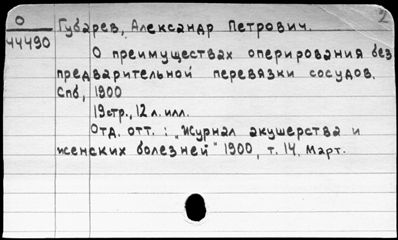 О Губарев, Александр Петрович. 2
44490
О преимуществах оперирования без
предварительной перевязки сосудов.
Спб, 1900
19 стр., 12 л. илл.
Отд. отт.: „Журнал акушерства и
женских болезней" 1900, т. 14. Март.